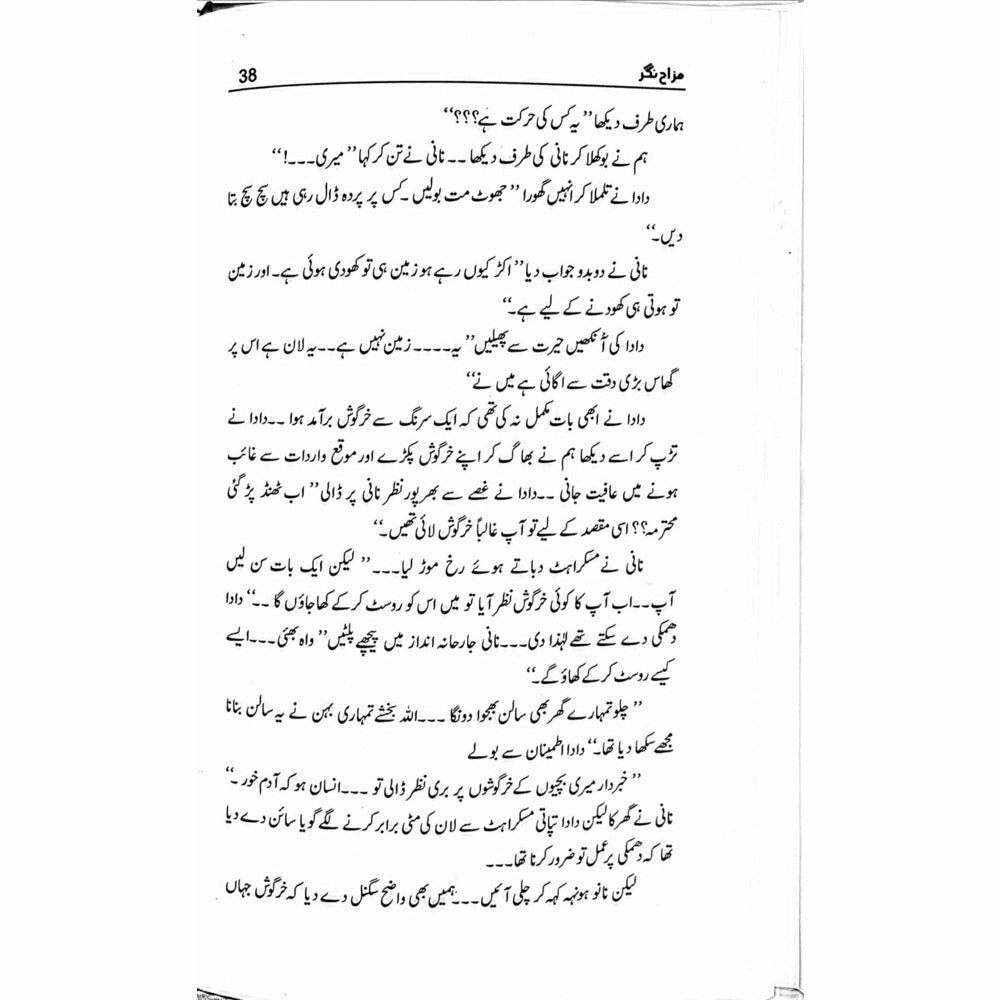 مزاح نگر
38
ہماری طرف دیکھا’’ یہ کس کی حرکت ہے؟؟؟‘‘
ہم نے بوکھلا کر نانی کی طرف دیکھا ۔۔ نانی نے تن کر کہا’’ میری ۔۔۔!‘‘
دادا نے تلملا کر انہیں گھورا ’’ جھوٹ مت بولیں ۔کس پر پردہ ڈال رہی ہیں سچ سچ بتا
دیں۔‘‘
نانی نے دوبدو جواب دیا’’ اکڑ کیوں رہے ہو زمین ہی تو کھودی ہوئی ہے۔ اور زمین
تو ہوتی ہی کھودنے کے لیے ہے۔‘‘
دادا کی آنکھیں حیرت سے پھیلیں’’ یہ۔۔۔۔ زمین نہیں ہے۔۔یہ لان ہے اس پر
گھاس بڑی دقت سے اگائی ہے میں نے‘‘
دادا نے ابھی بات مکمل نہ کی تھی کہ ایک سرنگ سے خرگوش برآمد ہوا ۔۔دادا نے
تڑپ کر اسے دیکھا ہم نے بھاگ کر اپنے خرگوش پکڑے اور موقع واردات سے غائب
ہونے میں عافیت جانی ۔۔دادا نے غصے سے بھرپور نظر نانی پر ڈالی’’ اب ٹھنڈ پڑ گئی
محترمہ؟؟ اسی مقصد کے لیے تو آپ غالباً خرگوش لائی تھیں۔‘‘
نانی نے مسکراہٹ دباتے ہوئے رخ موڑ لیا۔۔۔’’ لیکن ایک بات سن لیں
آپ۔۔اب آپ کا کوئی خرگوش نظر آیا تو میں اس کو روسٹ کر کے کھا جاؤں گا ۔۔‘‘ دادا
دھمکی دے سکتے تھے لہٰذا دی۔۔۔نانی جارحانہ انداز میں پیچھے پلٹیں’’ واہ بھئی۔۔۔ایسے
کیسے روسٹ کر کے کھاؤ گے۔‘‘
’’ چلو تمہارے گھر بھی سالن بھجوا دونگا ۔۔۔اللہ بخشے تمہاری بہن نے یہ سالن بنانا
مجھے سکھا دیا تھا۔‘‘ دادا اطمینان سے بولے
’’ خبردار میری بچیوں کے خرگوشوں پر بری نظر ڈالی تو ۔۔۔انسان ہو کہ آدم خور ۔‘‘
نانی نے گھرکا لیکن دادا تپاتی مسکراہٹ سے لان کی مٹی برابر کرنے لگے گویا سائن دے دیا
تھا کہ دھمکی پر عمل تو ضرور کرنا تھا۔۔۔
لیکن نانو ہونہہ کہہ کر چلی آئیں ۔۔۔ہمیں بھی واضح سگنل دے دیا کہ خرگوش جہاں